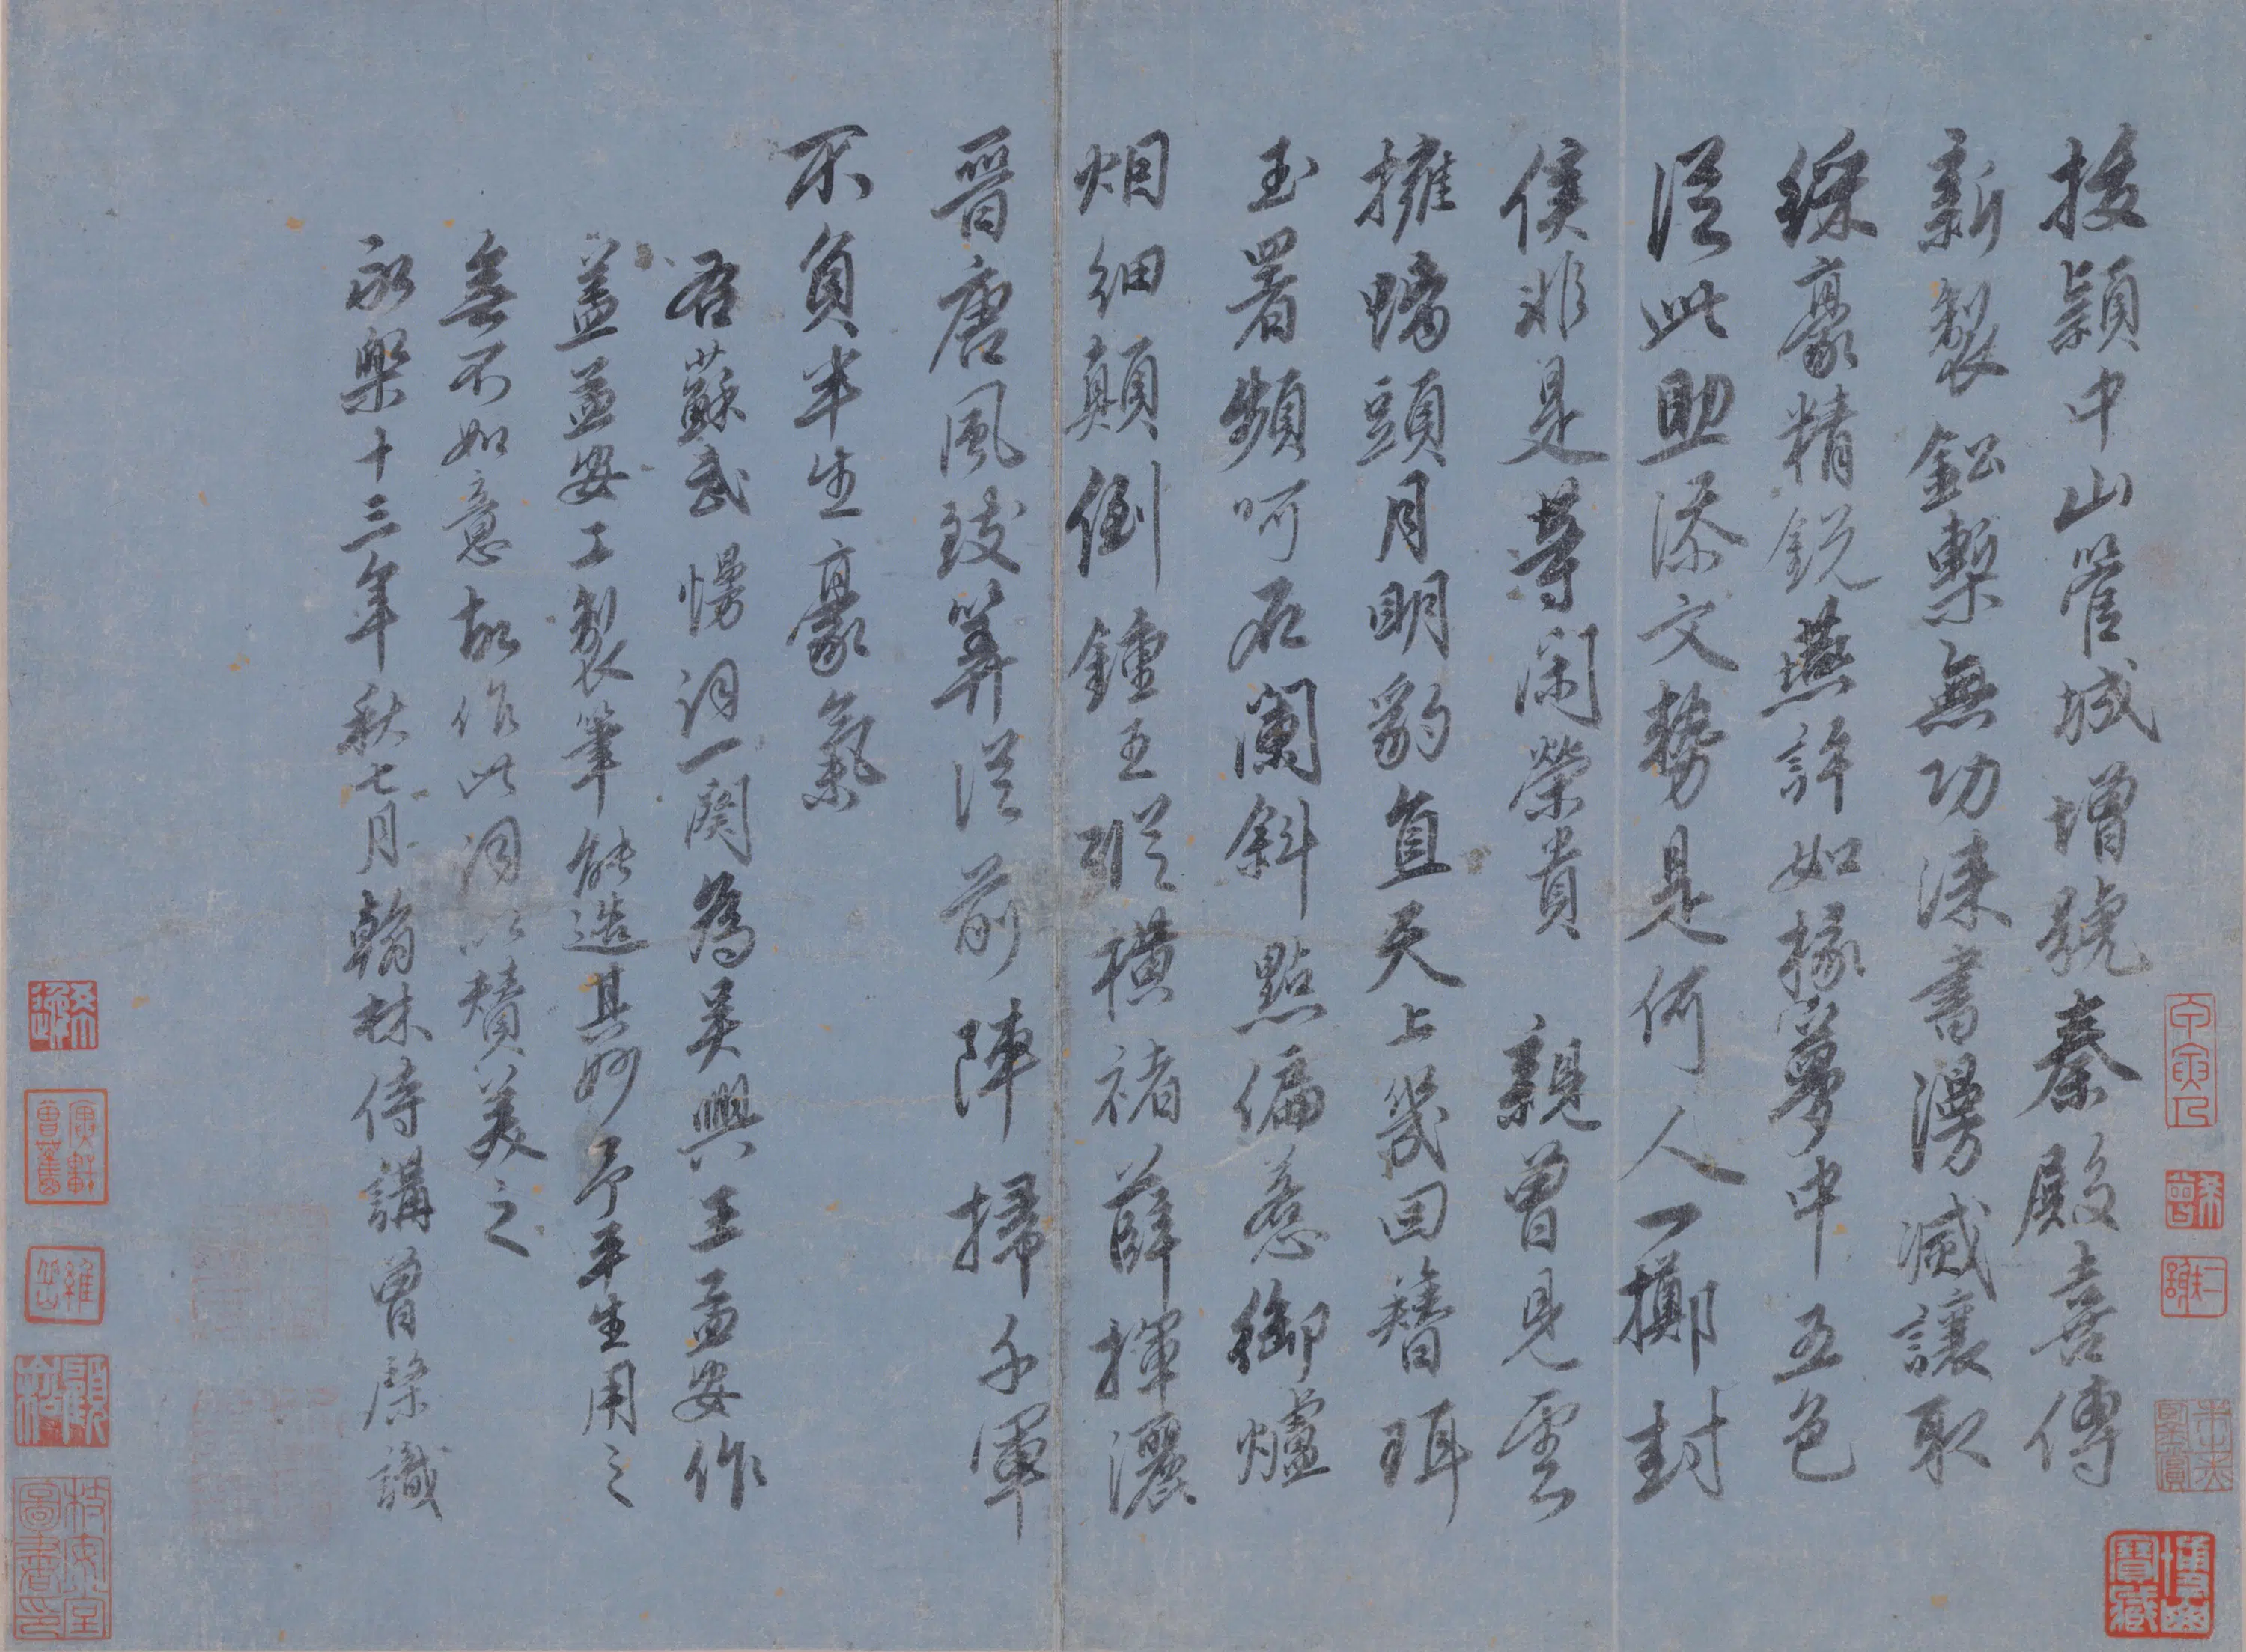 拔穎中山管城增號秦殿喜傳
新製鉛槧無功漆書漫滅讓取
綵豪精銳燕許如椽夢中五色
從此助添文勢是何人一擲封
侯非是等閑榮貴　親曾見雲
擁螭頭月明豹直天上幾回簪珥
玉署頻呵石闌斜點偏惹御爐
烟細顛倒鍾王縱橫褚薛揮灑
晉唐風致筭從前陣掃千軍
不負半生豪氣
右蘇武慢詞一闋為吳興王孟安作
蓋孟安工製筆能造其妙予平生用之
無不如意故作此詞以贊美之
永樂十三年秋七月翰林侍講曾棨識